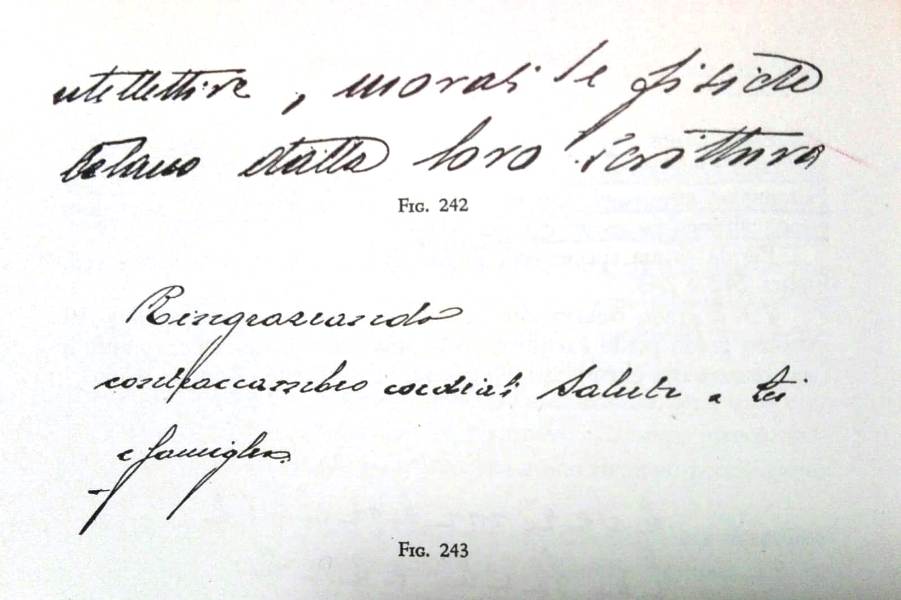 ntellettive, morali e fisiche
telano dalla loro scrittura
FIG. 242
Ringraziando
contraccambio cordiali saluti a Lei
e famiglia.
FIG. 243